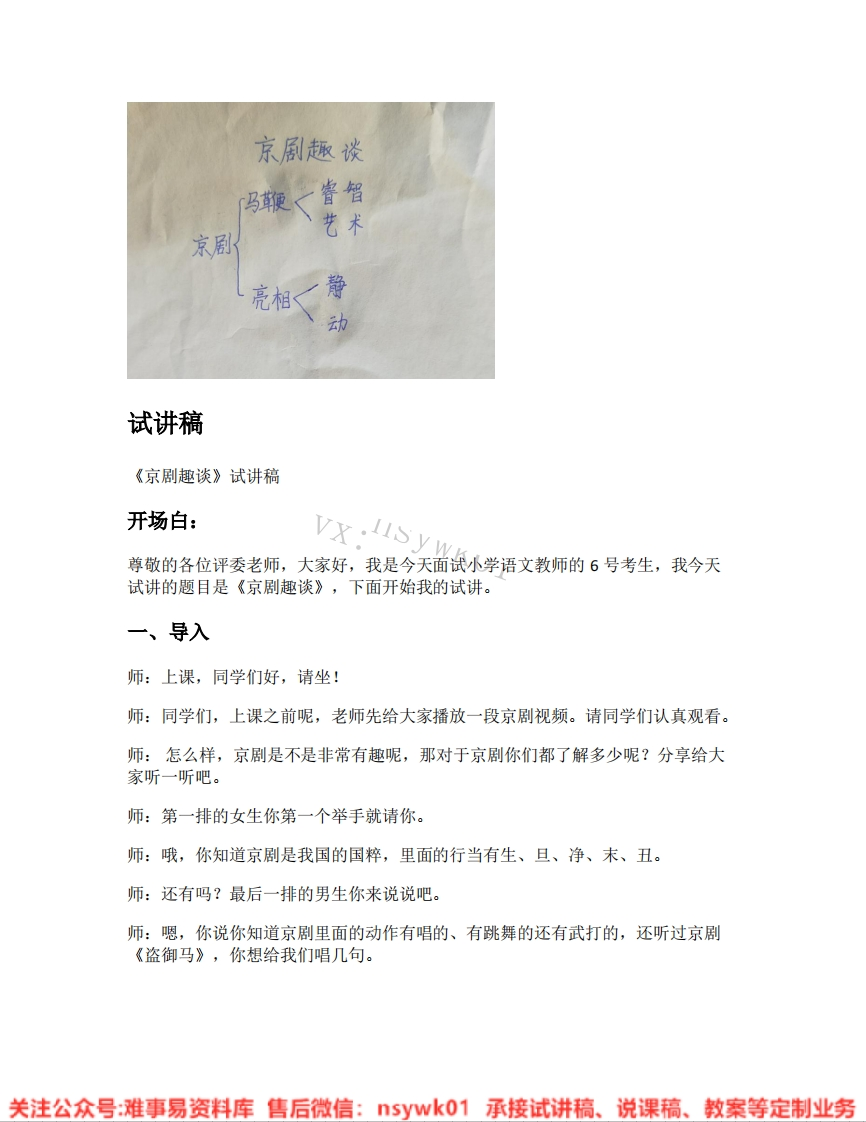 京剧趣谈
京剧
马鞭
睿智
艺术
亮相
静
动
试讲稿
《京剧趣谈》试讲稿
开场白：
VX:nsywk01
尊敬的各位评委老师，大家好，我是今天面试小学语文教师的 6 号考生，我今天
试讲的题目是《京剧趣谈》，下面开始我的试讲。
一、导入
师：上课，同学们好，请坐！
师：同学们，上课之前呢，老师先给大家播放一段京剧视频。请同学们认真观看。
师： 怎么样，京剧是不是非常有趣呢，那对于京剧你们都了解多少呢？分享给大
家听一听吧。
师：第一排的女生你第一个举手就请你。
师：哦，你知道京剧是我国的国粹，里面的行当有生、旦、净、末、丑。
师：还有吗？最后一排的男生你来说说吧。
师：嗯，你说你知道京剧里面的动作有唱的、有跳舞的还有武打的，还听过京剧
《盗御马》，你想给我们唱几句。
关注公众号:难事易资料库 售后微信：nsywk01 承接试讲稿、说课稿、教案等定制业务